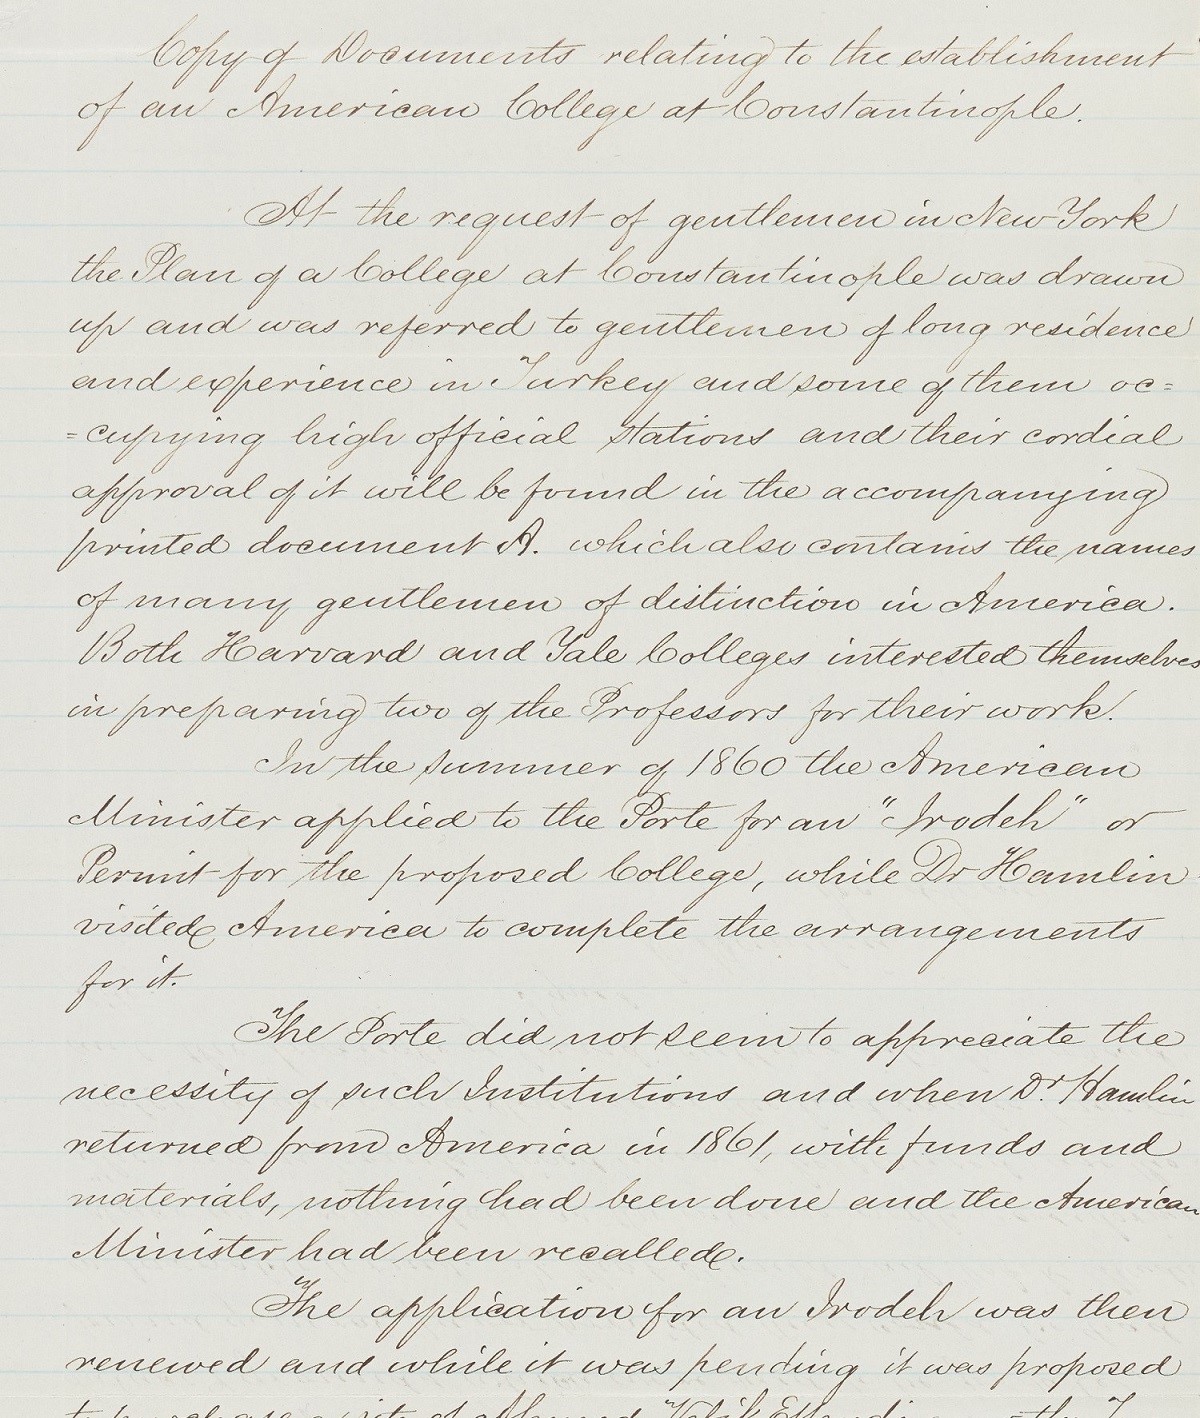 Copy of Documents relating to the establishment
of an American College at Constantinople.
At the request of gentlemen in New York
the Plan of a College at Constantinople was drawn
up and was referred to gentlemen of long residence
and experience in Turkey and some of them oc=
=cupying high official stations and their cordial
approval of it will be found in the accompanying
printed document A. which also contains the names
of many gentlemen of distinction in America.
Both Harvard and Yale Colleges interested themselves
in preparing two of the Professors for their work.
In the summer of 1860 the American
Minister applied to the Porte for an "Irodeh" or
Permit for the proposed College, while Dr Hamlin
visited America to complete the arrangements
for it.
The Porte did not seem to appreciate the
necessity of such Institutions and when Dr. Hamlin
returned from America in 1861, with funds and
materials, nothing had been done and the American
Minister had been recalled.
The application for an Irodeh was then
renewed and while it was pending it was proposed
to purchase a site of Ahmed Vefik Effendi